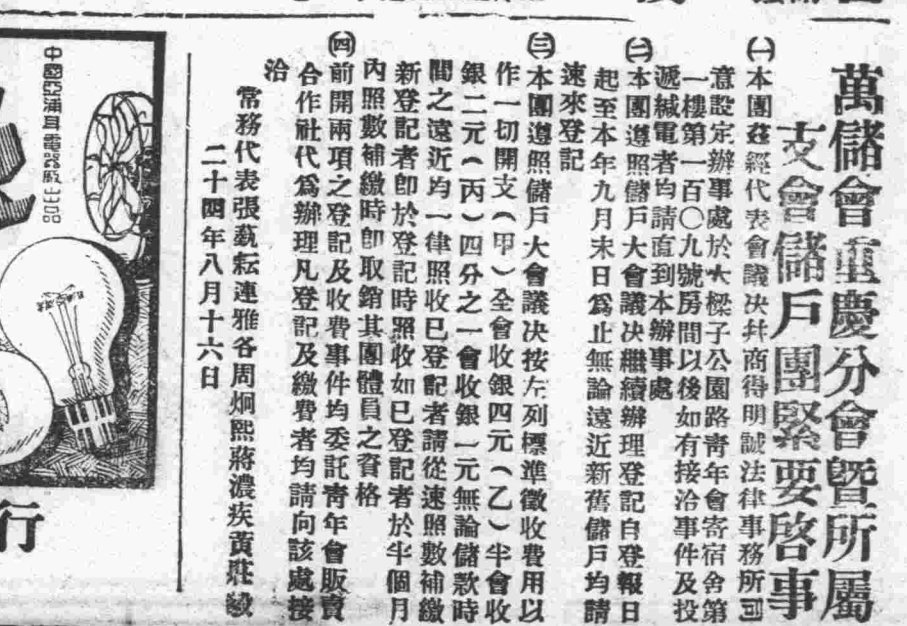 萬儲會重慶分會暨所屬
支會儲戶團緊要啓事
㈠本團茲經代表會議决幷商得明誠法律事務所同
意設定辦事處於大樑子公園路靑年會寄宿舍第
一樓第一百〇九號房間以後如有接洽事件及投
遞緘電者均請直到本辦事處
㈡本團遵照儲戶大會議决繼續辦理登記自登報日
起至本年九月末日爲止無論遠近新舊儲戶均請
速來登記
㈢本團遵照儲戶大會議决按左列標準徵收費用以
作一切開支（甲）全會收銀四元（乙）半會收
銀二元（丙）四分之一會收銀一元無論儲款時
間之遠近均一律照收已登記者請從速照數補繳
新登記者卽於登記時照收如已登記者於半個月
內照數補繳時卽取銷其團體員之資格
㈣前開兩項之登記及收費事件均委託靑年會販賣
合作社代爲辦理凡登記及繳費者均請向該處接
洽
常務代表張蓺耘連雅各周炯熙蔣濃疾黃莊
二十四年八月十六日
中國亞浦耳電器廠出品
行